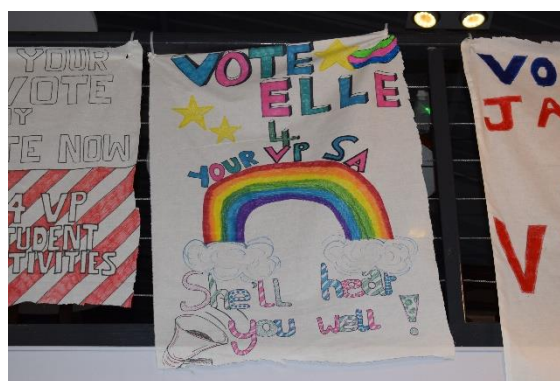 YOUR
VOTE
TE NOW
4 VP
STUDENT
TIVITIES
VOTE
ELLE
4
YOUR VP SA
Shell hear
you well!
VO
JA
V